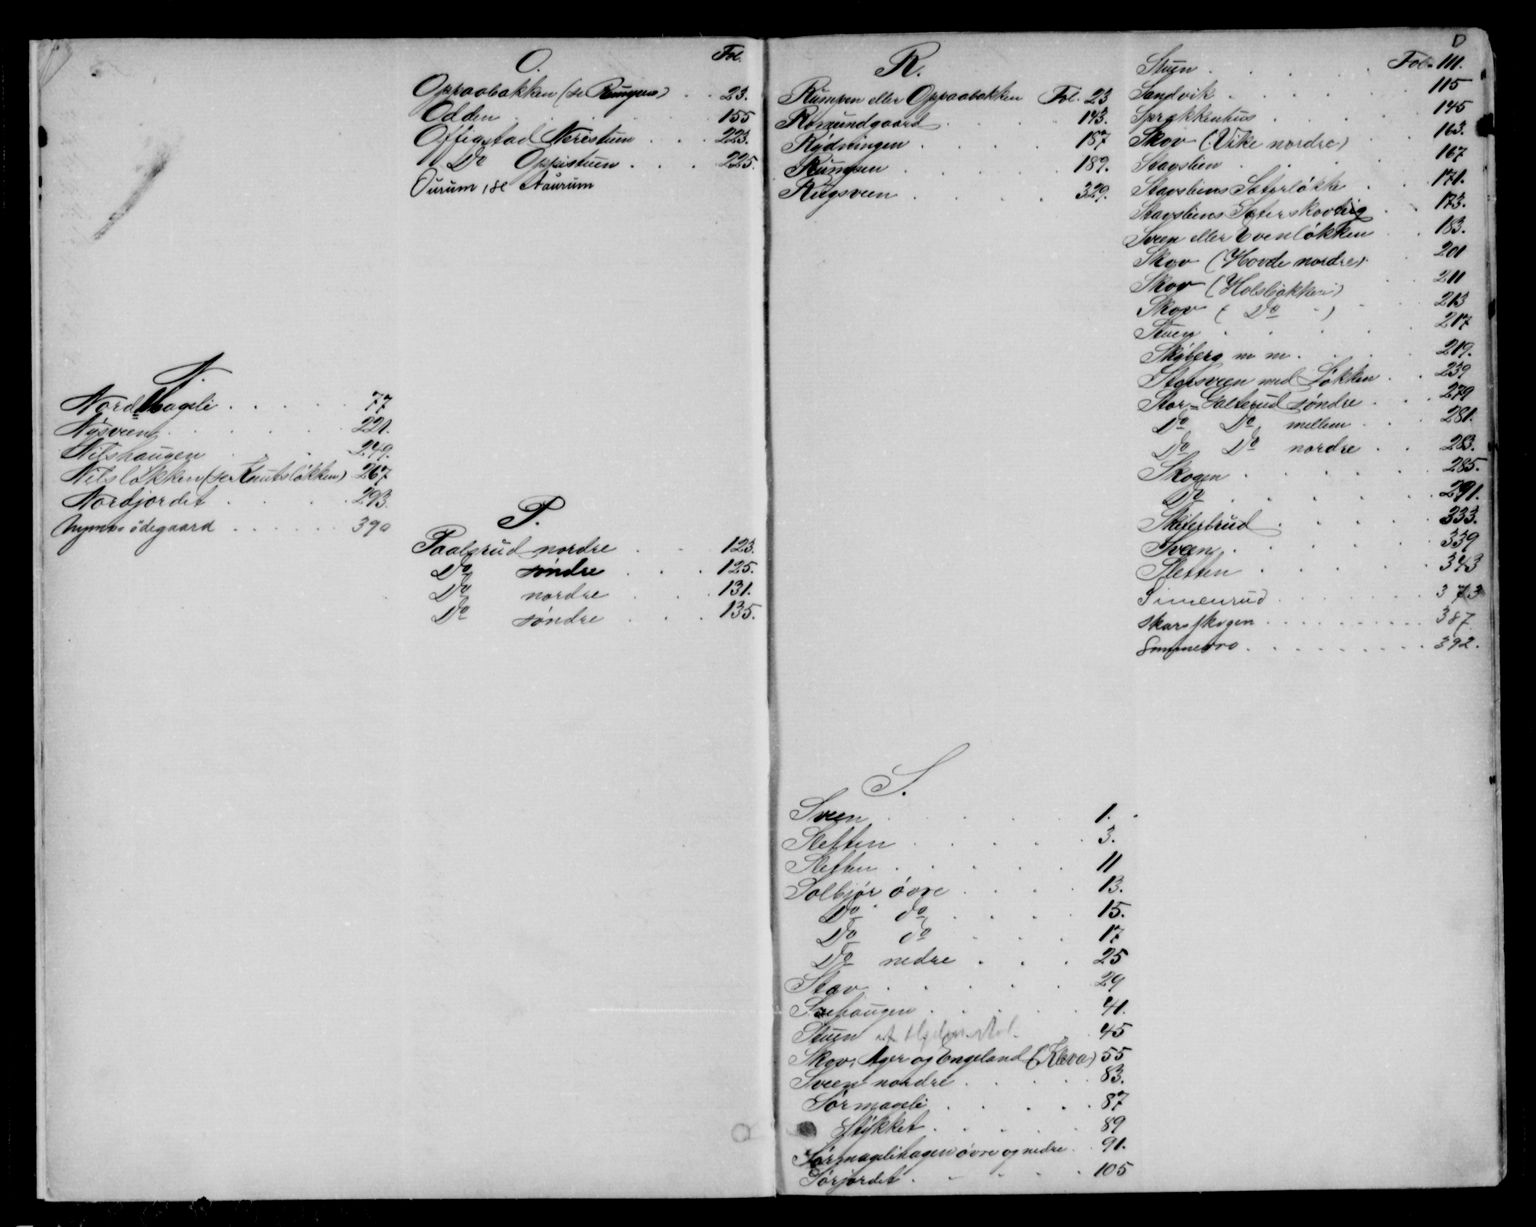 N.
Nordhageli . . . . . 77
Nysveen . . . . . 221.
Nilshaugen . . . 249.
Nilsløkken (se Knutsløkken) 267
Nordjordet . . . . 293.
Nymosødegaard . . . . . 390
O. Fol.
Oppaabakken (se Rumpen) . . 23.
Odden . . . . . 155
Offigstad Nerestuen . . . 223.
Do Oppistuen . . . 225.
Ourum, se Aaurum
P.
Paalsrud nordre . . . 123.
Do søndre . . . 125.
Do nordre . . . 131.
Do søndre . . . 135.
R.
Rumpen eller Oppaabakken Fol. 23
Rosmundgaard . . . . 143.
Rydningen . . . . . 187
Rungsen . . . . . 189.
Rugsveen . . . . . 329.
S.
Sveen . . . . . 1.
Sletten . . . . . 3.
Sletten . . . . . 11
Solbjør øvre . . . . 13.
Do do . . . . 15.
Do do . . . . 17
Do nedre . . . 25
Stav . . . . . 29
Snehaugen . . . . 41.
Stuen . 45
Skov, Ager og Engeland (Kleva) 55
Sveen nordre . . . . . 83.
Sørmageli . . . . . 87
Stykket . . . . . 89
Sørmagelihagen øvre og nedre . 91.
Sørjordet . . . . . 105
Stuen . . . . . Fol. 111.
Sandvik . . . . . 115
Sprækkenhus . . . . 145
Skov (Vike nordre) . 163.
Stavslien . . . . 167
Stavsliens Sæterløkke . . 171.
Stavsliens Sæterskovteig . . 173.
Sveen eller Evenløkken . . 183.
Skov (Hovde nordre) . . 201
Skov (Holsbakken) . . 211
Skov ( Do ) . . . 213
Stuen . . . . . 217
Skyberg m. m. . . . 219.
Storsveen med Løkken . . 239
Stor-Galterud søndre . . . 279
Do Do mellem . . . 281.
Do Do nordre . . . 283.
Skogen . . . . . 285.
Do . . . . . 291.
Skiferbrud . . . . . 333.
Sveen . . . . . 339
Sletten . . . . . 343
Simenrud . . . . . 373
Skarsskogen . . . . . 387
Sommerro . . . . . 392.